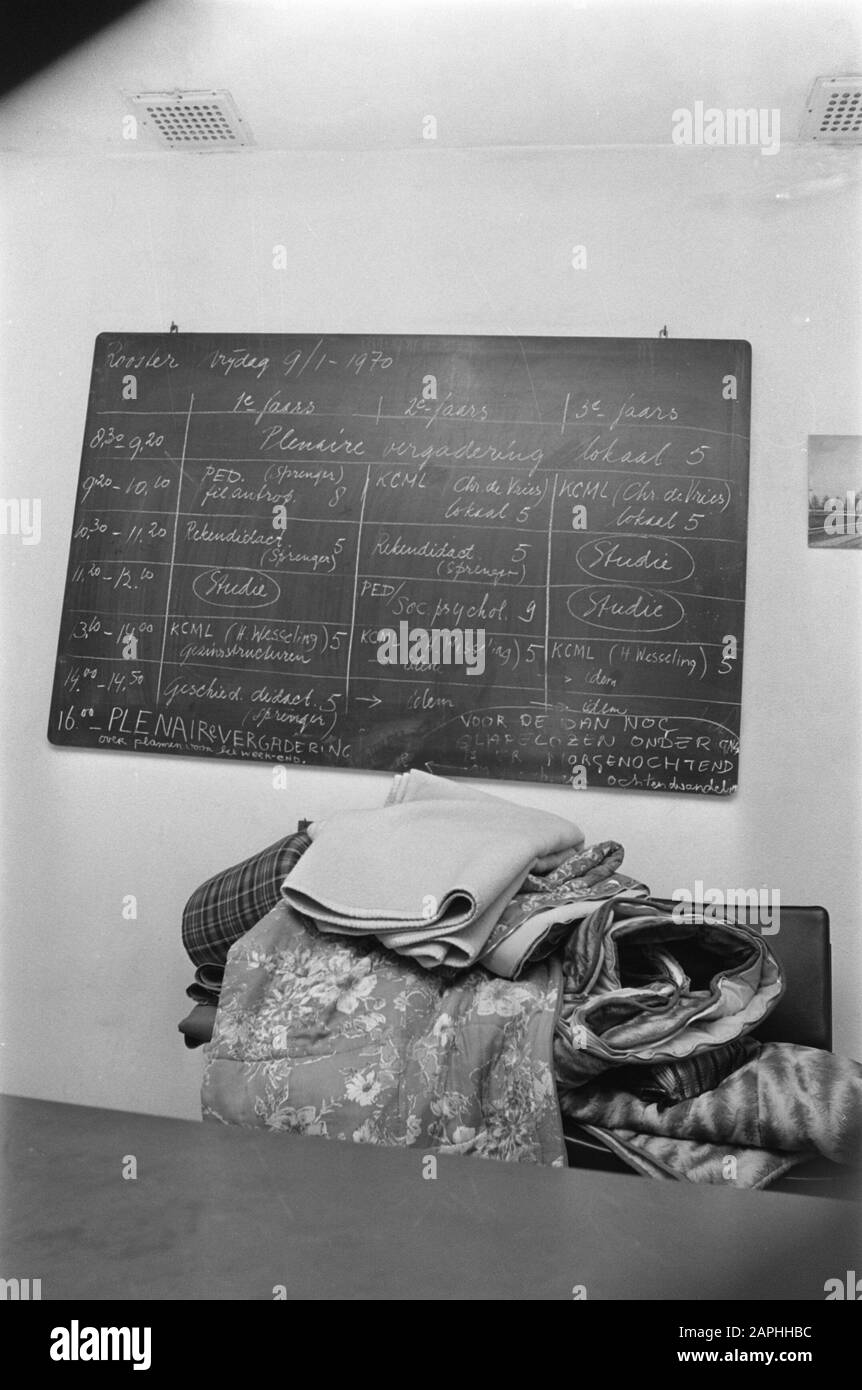 Rooster Vrijdag 9/1-1970
1e jaars 2e-jaars 3e-jaars
8,30-9,20 Plenaire vergadering lokaal 5
9,20-10,10 PED. (Sprenger) KCML Chr. de Vries) KCML (Chr. de Vries)
fil antrop. 8 lokaal 5 lokaal 5
10,30-11.20 Rekendidact. 5 Rekendidact. 5 Studie
(Sprenger) (Sprenger)
11,20-12,10 Studie PED/ Studie
Soc. psychol. 9
13,10-14,00 KCML (H. Wesseling) 5 KCML (H. Wesseling) 5 KCML (H. Wesseling) 5
gezinsstructuren idem idem
14,00-14,50 Geschied. didact. 5 → idem → idem
(Sprenger)
16,00 PLENAIRe VERGADERING
over plannen voor het week-end.
VOOR DE DAN NOG
SLAPELOZEN ONDER ONS
MORGENOCHTEND
ochtendwandeling
alamy
Image ID: 2APHHBC
www.alamy.com